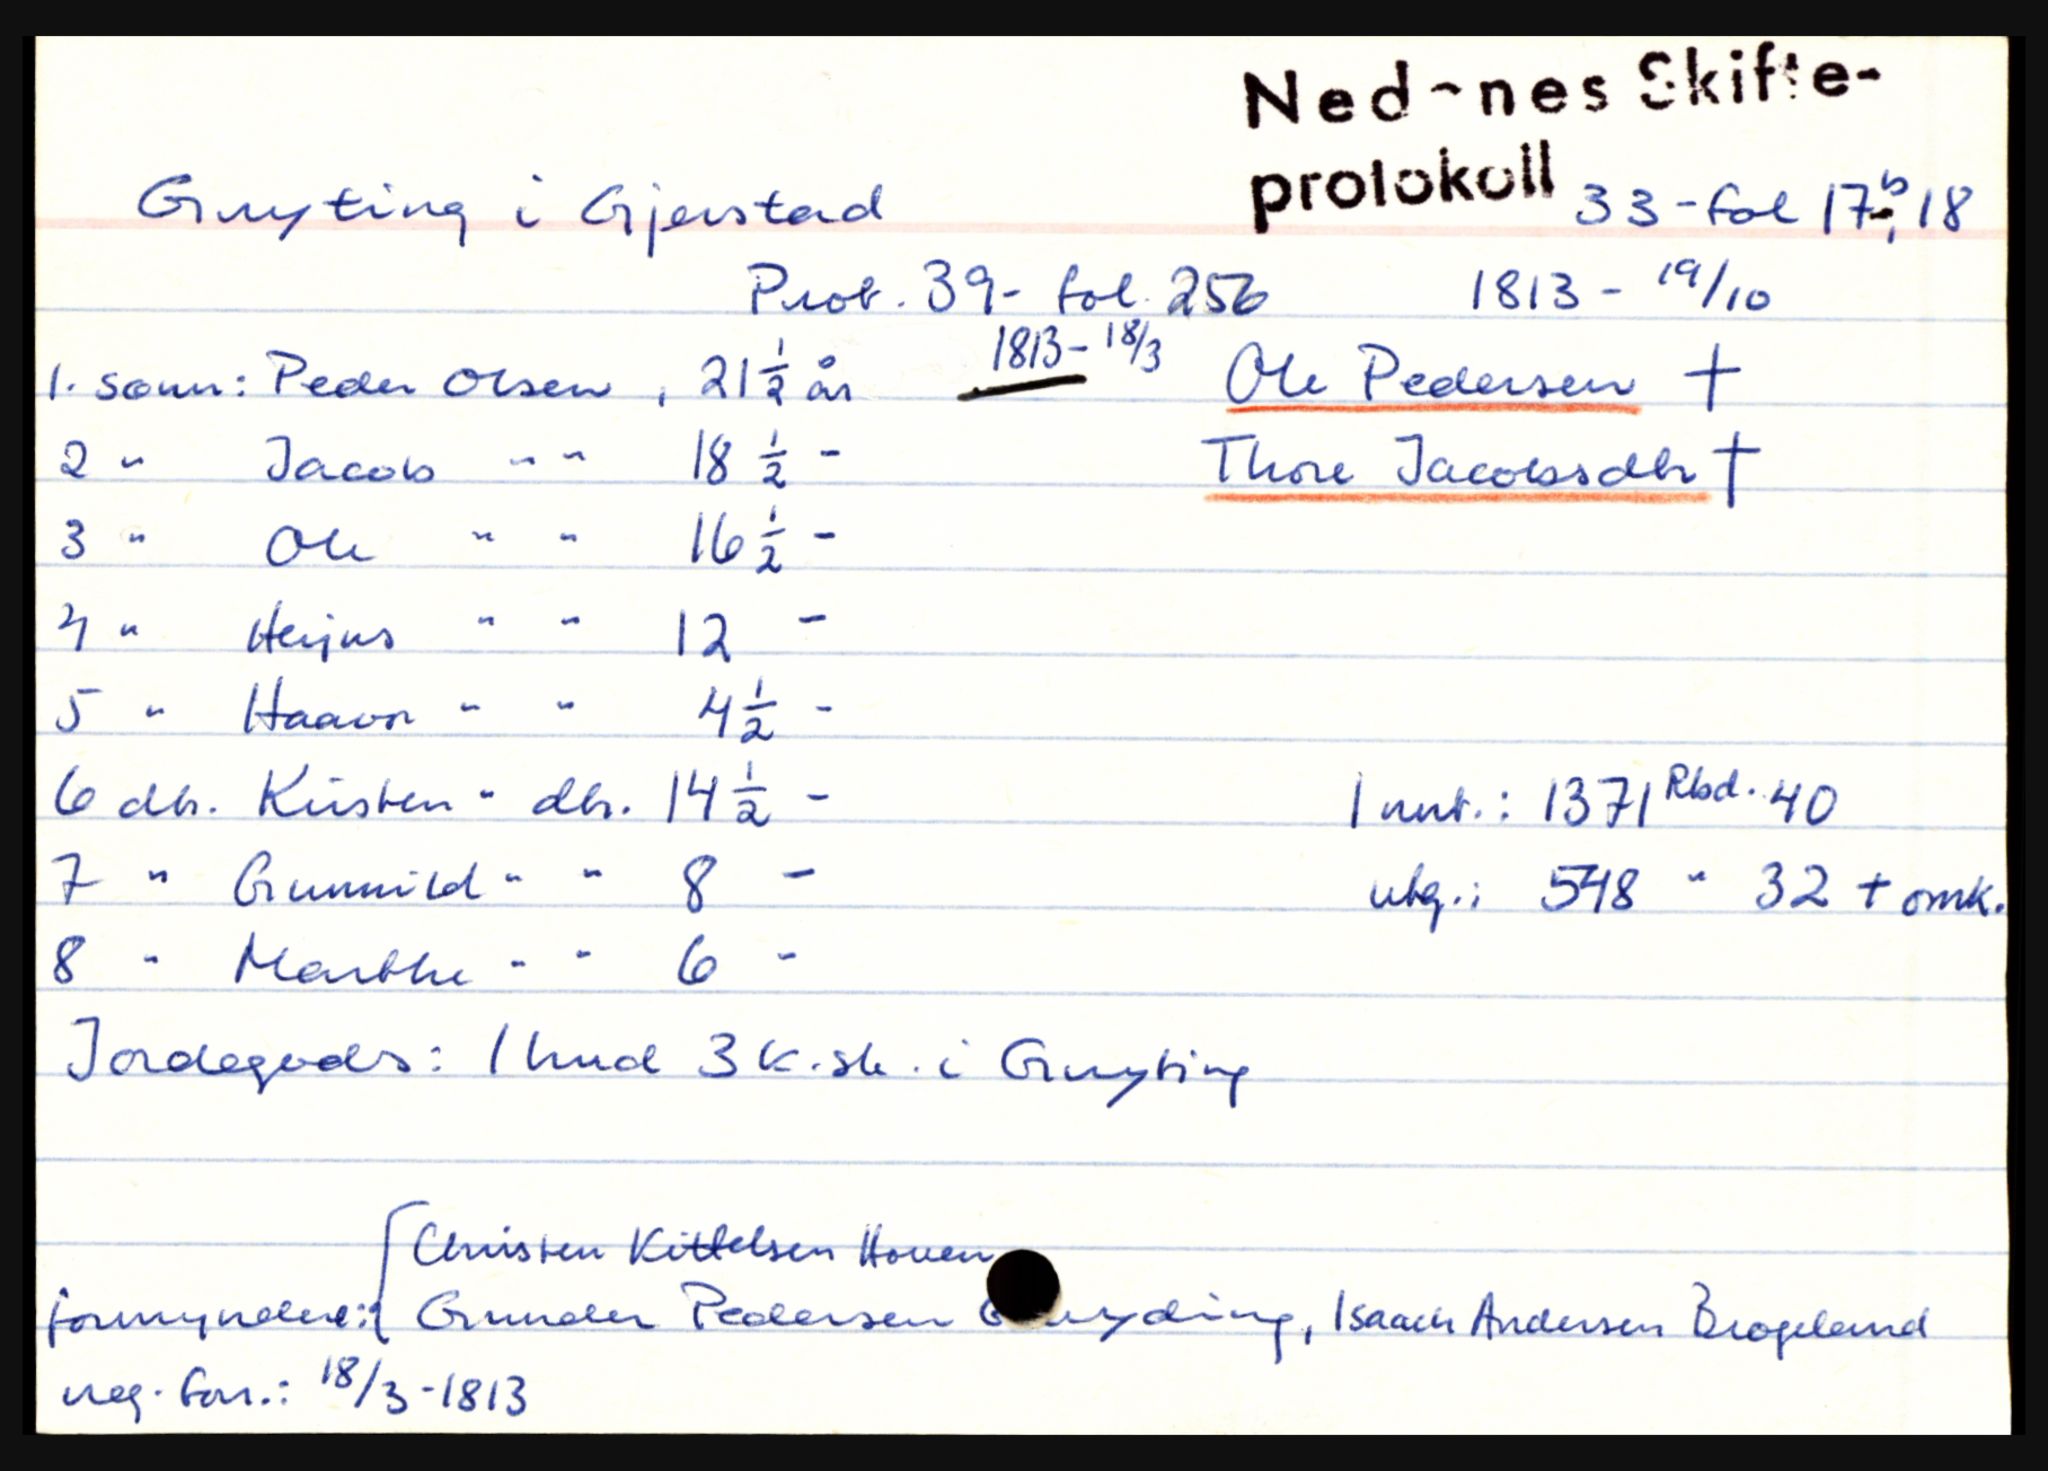 Nedenes Skifte-
protokoll 33 - fol 17b, 18
Gryting i Gjerstad
Prot. 39 - fol. 256 1813 - 19/10
1813 - 18/3
1. sønn: Peder Olsen, 21 1/2 år Ole Pedersen †
2 " Jacob " " 18 1/2 - Thore Jacobsdtr †
3 " Ole " " 16 1/2 -
4 " " " 12 -
5 " Haavor " " 4 1/2 -
6 dtr. Kirsten " dtr. 14 1/2 - Innt.: 1371 Rbd. 40
7 " Gunnild " " 8 - utg.: 548 " 32 + omk.
8 " Marthe " " 6 -
Jordegods: 1 hud 3 k.sk. i Gryting
Christen Kittelsen Hoven
formyndere: Gunder Pedersen Gryding, Isaach Andersen Brogeland
reg. forr.: 18/3 - 1813